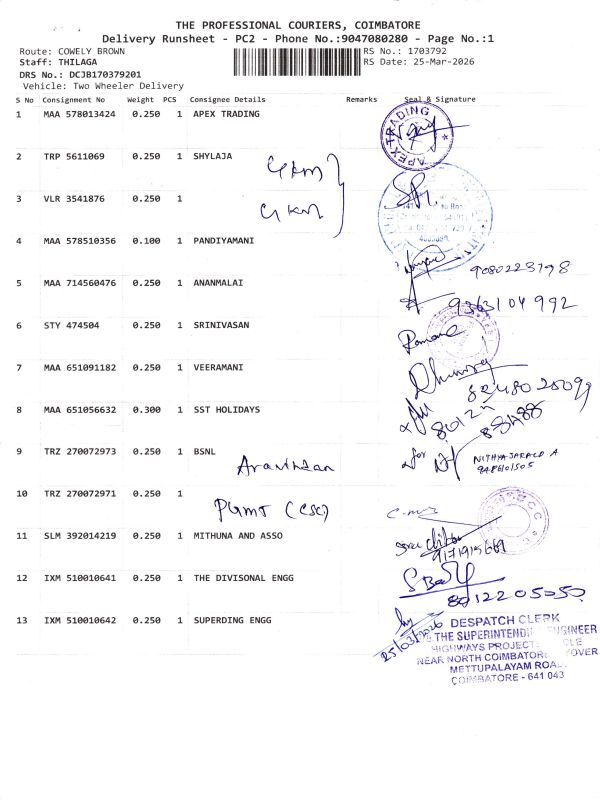 THE PROFESSIONAL COURIERS, COIMBATORE
Delivery Runsheet - PC2 - Phone No.:9047080280 - Page No.:1
Route: COWELY BROWN RS No.: 1703792
Staff: THILAGA RS Date: 25-Mar-2026
DRS No.: DCJB170379201
Vehicle: Two Wheeler Delivery
S No Consignment No Weight PCS Consignee Details Remarks Seal & Signature
1 MAA 578013424 0.250 1 APEX TRADING
APEX TRADING
2 TRP 5611069 0.250 1 SHYLAJA
3 VLR 3541876 0.250 1
4 MAA 578510356 0.100 1 PANDIYAMANI
9080223798
5 MAA 714560476 0.250 1 ANANMALAI
9363104992
6 STY 474504 0.250 1 SRINIVASAN
7 MAA 651091182 0.250 1 VEERAMANI
8 MAA 651056632 0.300 1 SST HOLIDAYS
9 TRZ 270072973 0.250 1 BSNL
NITHYA JARALD A
10 TRZ 270072971 0.250 1
PGMT (CSC)
11 SLM 392014219 0.250 1 MITHUNA AND ASSO
12 IXM 510010641 0.250 1 THE DIVISONAL ENGG
8012205050
13 IXM 510010642 0.250 1 SUPERDING ENGG
25/03/2026
DESPATCH CLERK
THE SUPERINTENDI ENGINEER
HIGHWAYS PROJECT
NEAR NORTH COIMBATOR OVER
METTUPALAYAM ROAD
COIMBATORE - 641 043